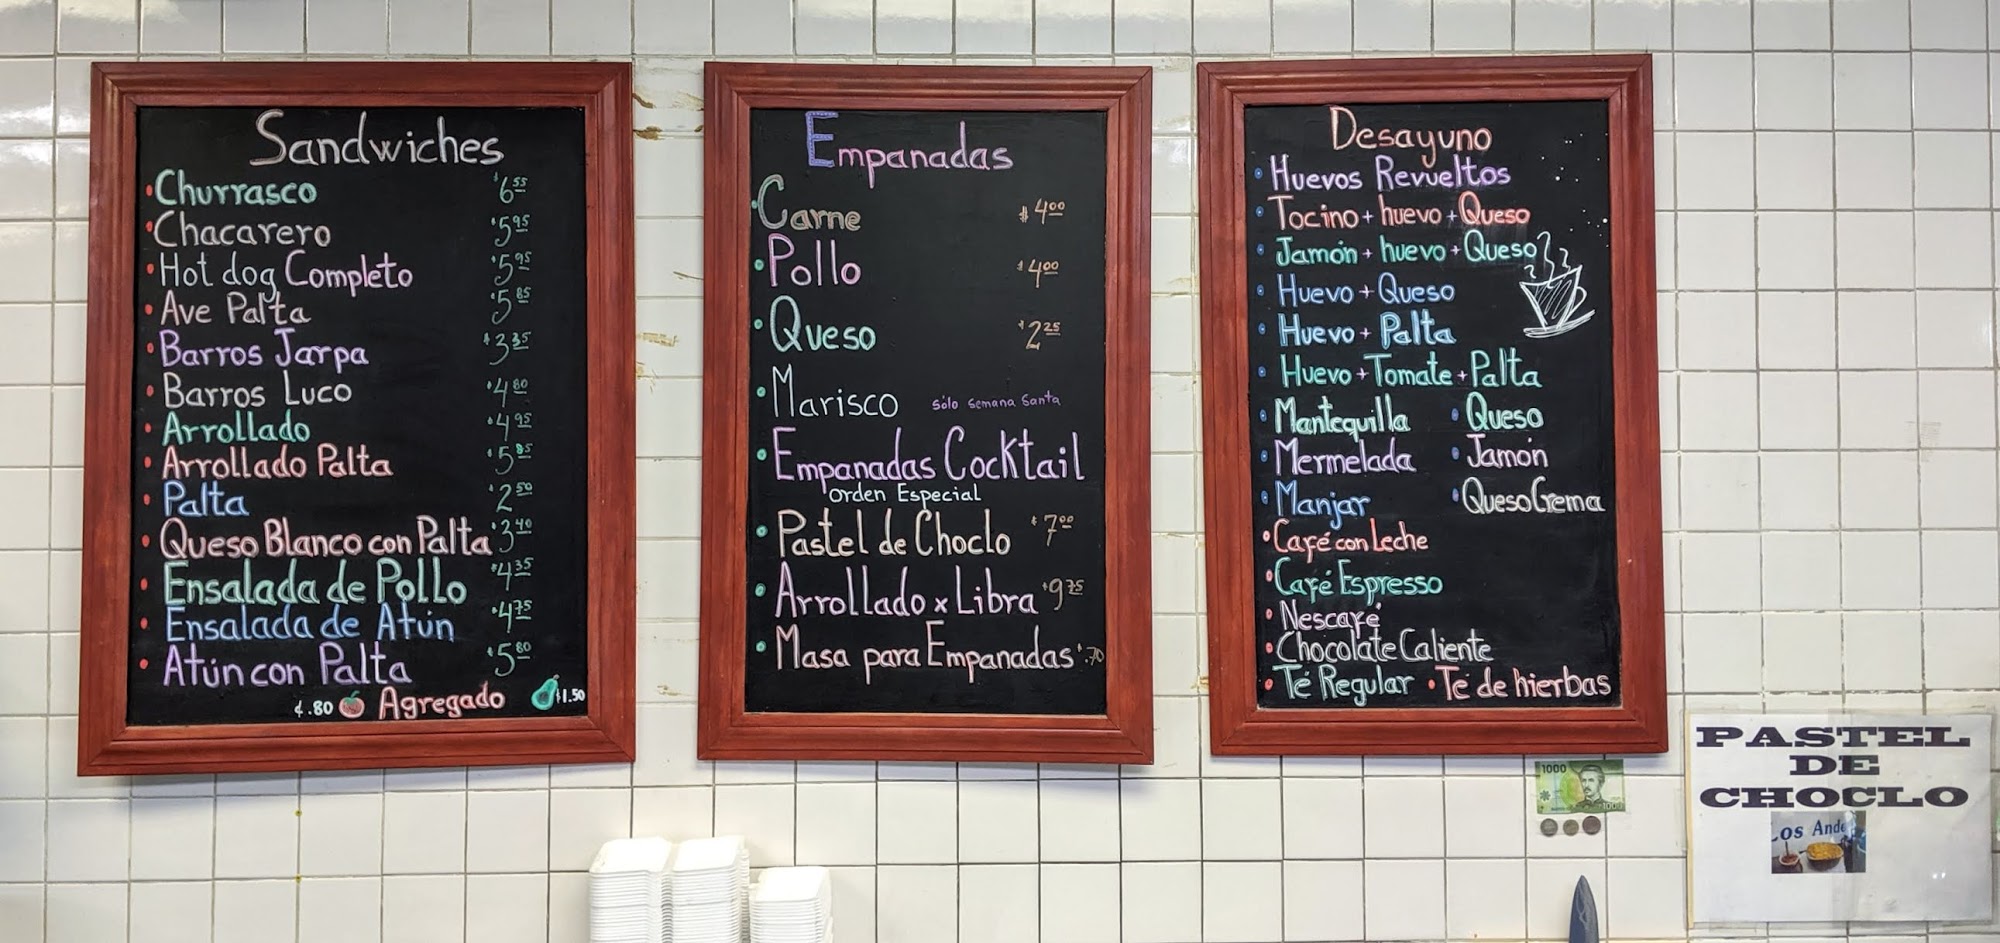 Sandwiches
Churrasco $6.55
Chacarero $5.95
Hot dog Completo $5.95
Ave Palta $5.85
Barros Jarpa $3.35
Barros Luco $4.80
Arrollado $4.95
Arrollado Palta $5.85
Palta $2.50
Queso Blanco con Palta $3.40
Ensalada de Pollo $4.35
Ensalada de Atún $4.75
Atún con Palta $5.80
¢.80 Agregado $1.50
Empanadas
Carne $4.00
Pollo $4.00
Queso $2.25
Marisco Sólo Semana Santa
Empanadas Cocktail
Orden Especial
Pastel de Choclo $7.00
Arrollado x Libra $9.75
Masa para Empanadas $.70
Desayuno
Huevos Revueltos
Tocino + huevo + Queso
Jamón + huevo + Queso
Huevo + Queso
Huevo + Palta
Huevo + Tomate + Palta
Mantequilla • Queso
Mermelada • Jamón
Manjar • Queso Crema
Café con Leche
Café Espresso
Nescafé
Chocolate Caliente
Té Regular • Té de hierbas
1000
PASTEL
DE
CHOCLO
Los Ande